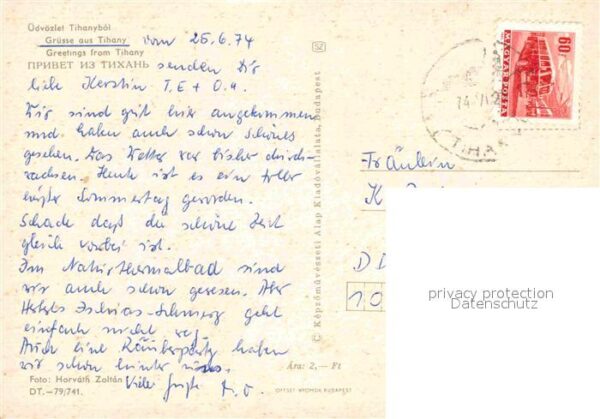 Üdvözlet Tihanyból
Grüsse aus Tihany vom 25.6.74
Greetings from Tihany
ПРИВЕТ ИЗ ТИХАНЬ senden Dir
liebe Kerstin T.E + O.
Wir sind gut hier angekommen
und haben auch schon schönes
gesehen. Das Wetter war bisher durch-
wachsen. Heute ist es ein toller
Sommertag geworden.
Schade daß die schöne Zeit
gleich vorbei ist.
Im Naturthermalbad sind
wir auch schon gewesen. Aber
Ischias-Schmerz geht
einfach nicht weg.
Auch eine Räuberparty haben
wir schon hinter uns.
Viele Grüße
Foto: Horváth Zoltán
DT.—79/741.
© Képzőművészeti Alap Kiadóvállalata, Budapest
Ára: 2,— Ft
OFFSET NYOMDA BUDAPEST
MAGYAR POSTA
60
TIHANY
Fräulein
K
DD
10
privacy protection
Datenschutz